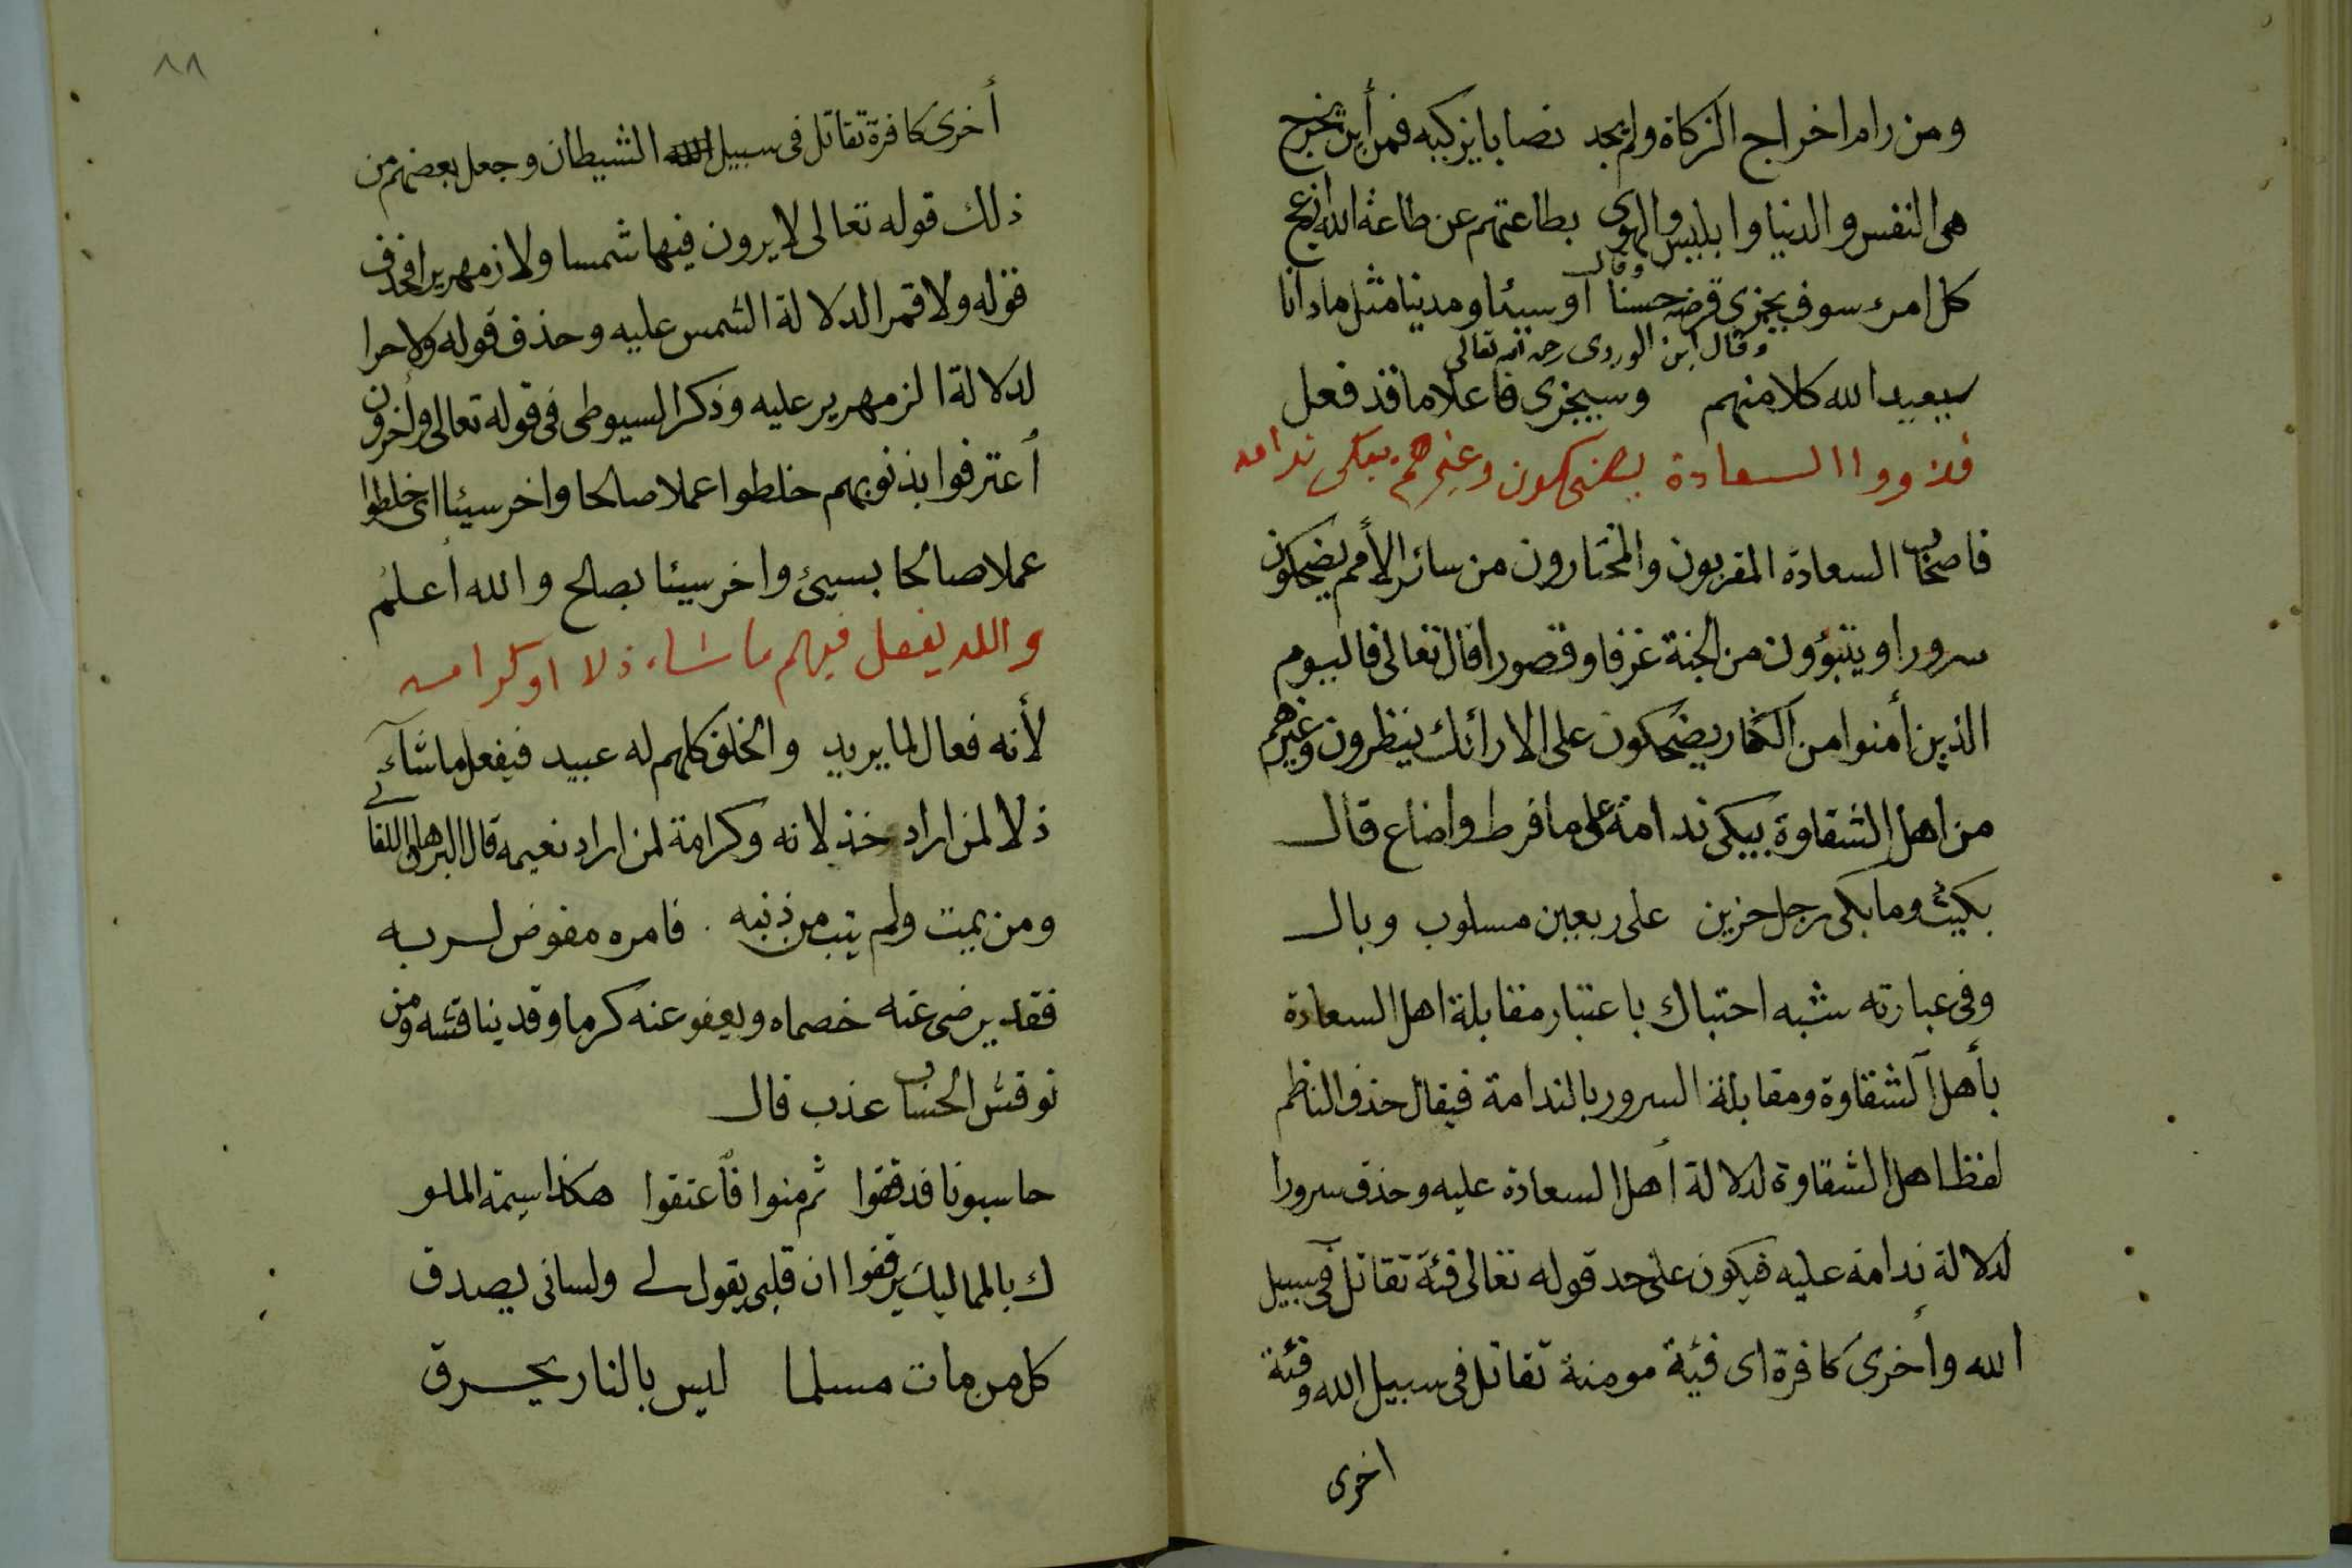 ومن رام اخراج الزكاة ولم يجد نصابا يزكيه فمن أين يخرج
هى النفس والدنيا وابليس والهوى بطاعتهم عن طاعة الله
وقال
كل امرء سوف يجزى قرضه حسنا أو سيئا ومدينا مثل مادانا
وقال ابن الوردى رحمه الله تعالى
سيعيد الله كلا منهم وسيجزى فاعلا ما قد فعل
فذووا السعادة يضحكون وغيرهم يبكى ندامه
فاصحاب السعادة المقربون والمختارون من سائر الأمم يضحكون
سرورا ويتبوؤون من الجنة غرفا وقصورا قال تعالى فاليوم
الذين أمنوا من الكفار يضحكون على الارائك ينظرون وغيرهم
من اهل الشقاوة يبكى ندامة على ما فرط واضاع قال
بكيت وما بكى رجل حزين على ربعين مسلوب وبال
وفى عبارته شبه احتباك باعتبار مقابلة اهل السعادة
بأهل الشقاوة ومقابلة السرور بالندامة فيقال حذف الناظم
لفظ اهل الشقاوة لدلالة أهل السعادة عليه وحذف سرورا
لدلالة ندامة عليه فيكون على حد قوله تعالى فئة تقاتل فى سبيل
الله وأخرى كافرة اى فئة مومنة تقاتل فى سبيل الله وفئة
اخرى
٨٨
أخرى كافرة تقاتل فى سبيل الله الشيطان وجعل بعضهم من
ذلك قوله تعالى لا يرون فيها شمسا ولا زمهريرا فحذف
قوله ولا قمرا لدلالة الشمس عليه وحذف قوله ولا حرا
لدلالة الزمهرير عليه وذكر السيوطى فى قوله تعالى وأخرون
أعترفوا بذنوبهم خلطوا عملا صالحا واخر سيئا اى خلطوا
عملا صالحا بسيئ واخر سيئا بصالح والله أعلم
والله يفعل فيهم ما شاء ذلا او كرامه
لأنه فعال لما يريد والخلق كلهم له عبيد فيفعل ما شآء
ذلا لمن اراد خذلانه وكرامة لمن اراد نعيمه قال البرهان اللقانى
ومن يمت ولم يتب من ذنبه . فامره مفوض لربه
فقد يرضى عنه خصماه ويعفو عنه كرما وقد يناقشه ومن
نوقش الحساب عذب قال
حاسبونا فدققوا ثم منوا فأعتقوا هكذا سيمة الملو
ك بالمماليك يرفقوا ان قلبى يقول لى ولسانى يصدق
كل من مات مسلما ليس بالنار يحرق